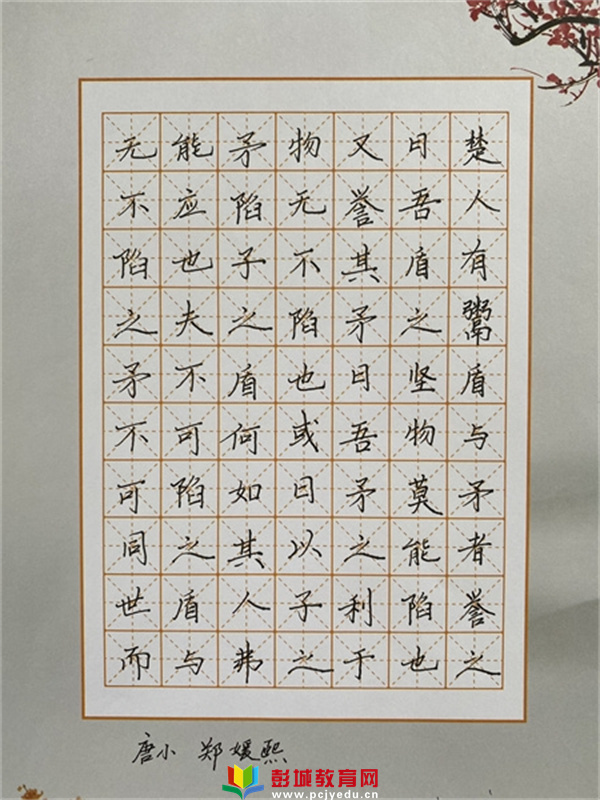 楚人有鬻盾与矛者誉之
曰吾盾之坚物莫能陷也
又誉其矛曰吾矛之利于
物无不陷也或曰以子之
矛陷子之盾何如其人弗
能应也夫不可陷之盾与
无不陷之矛不可同世而
唐小 郑媛熙
彭城教育网
www.pcjyedu.cn